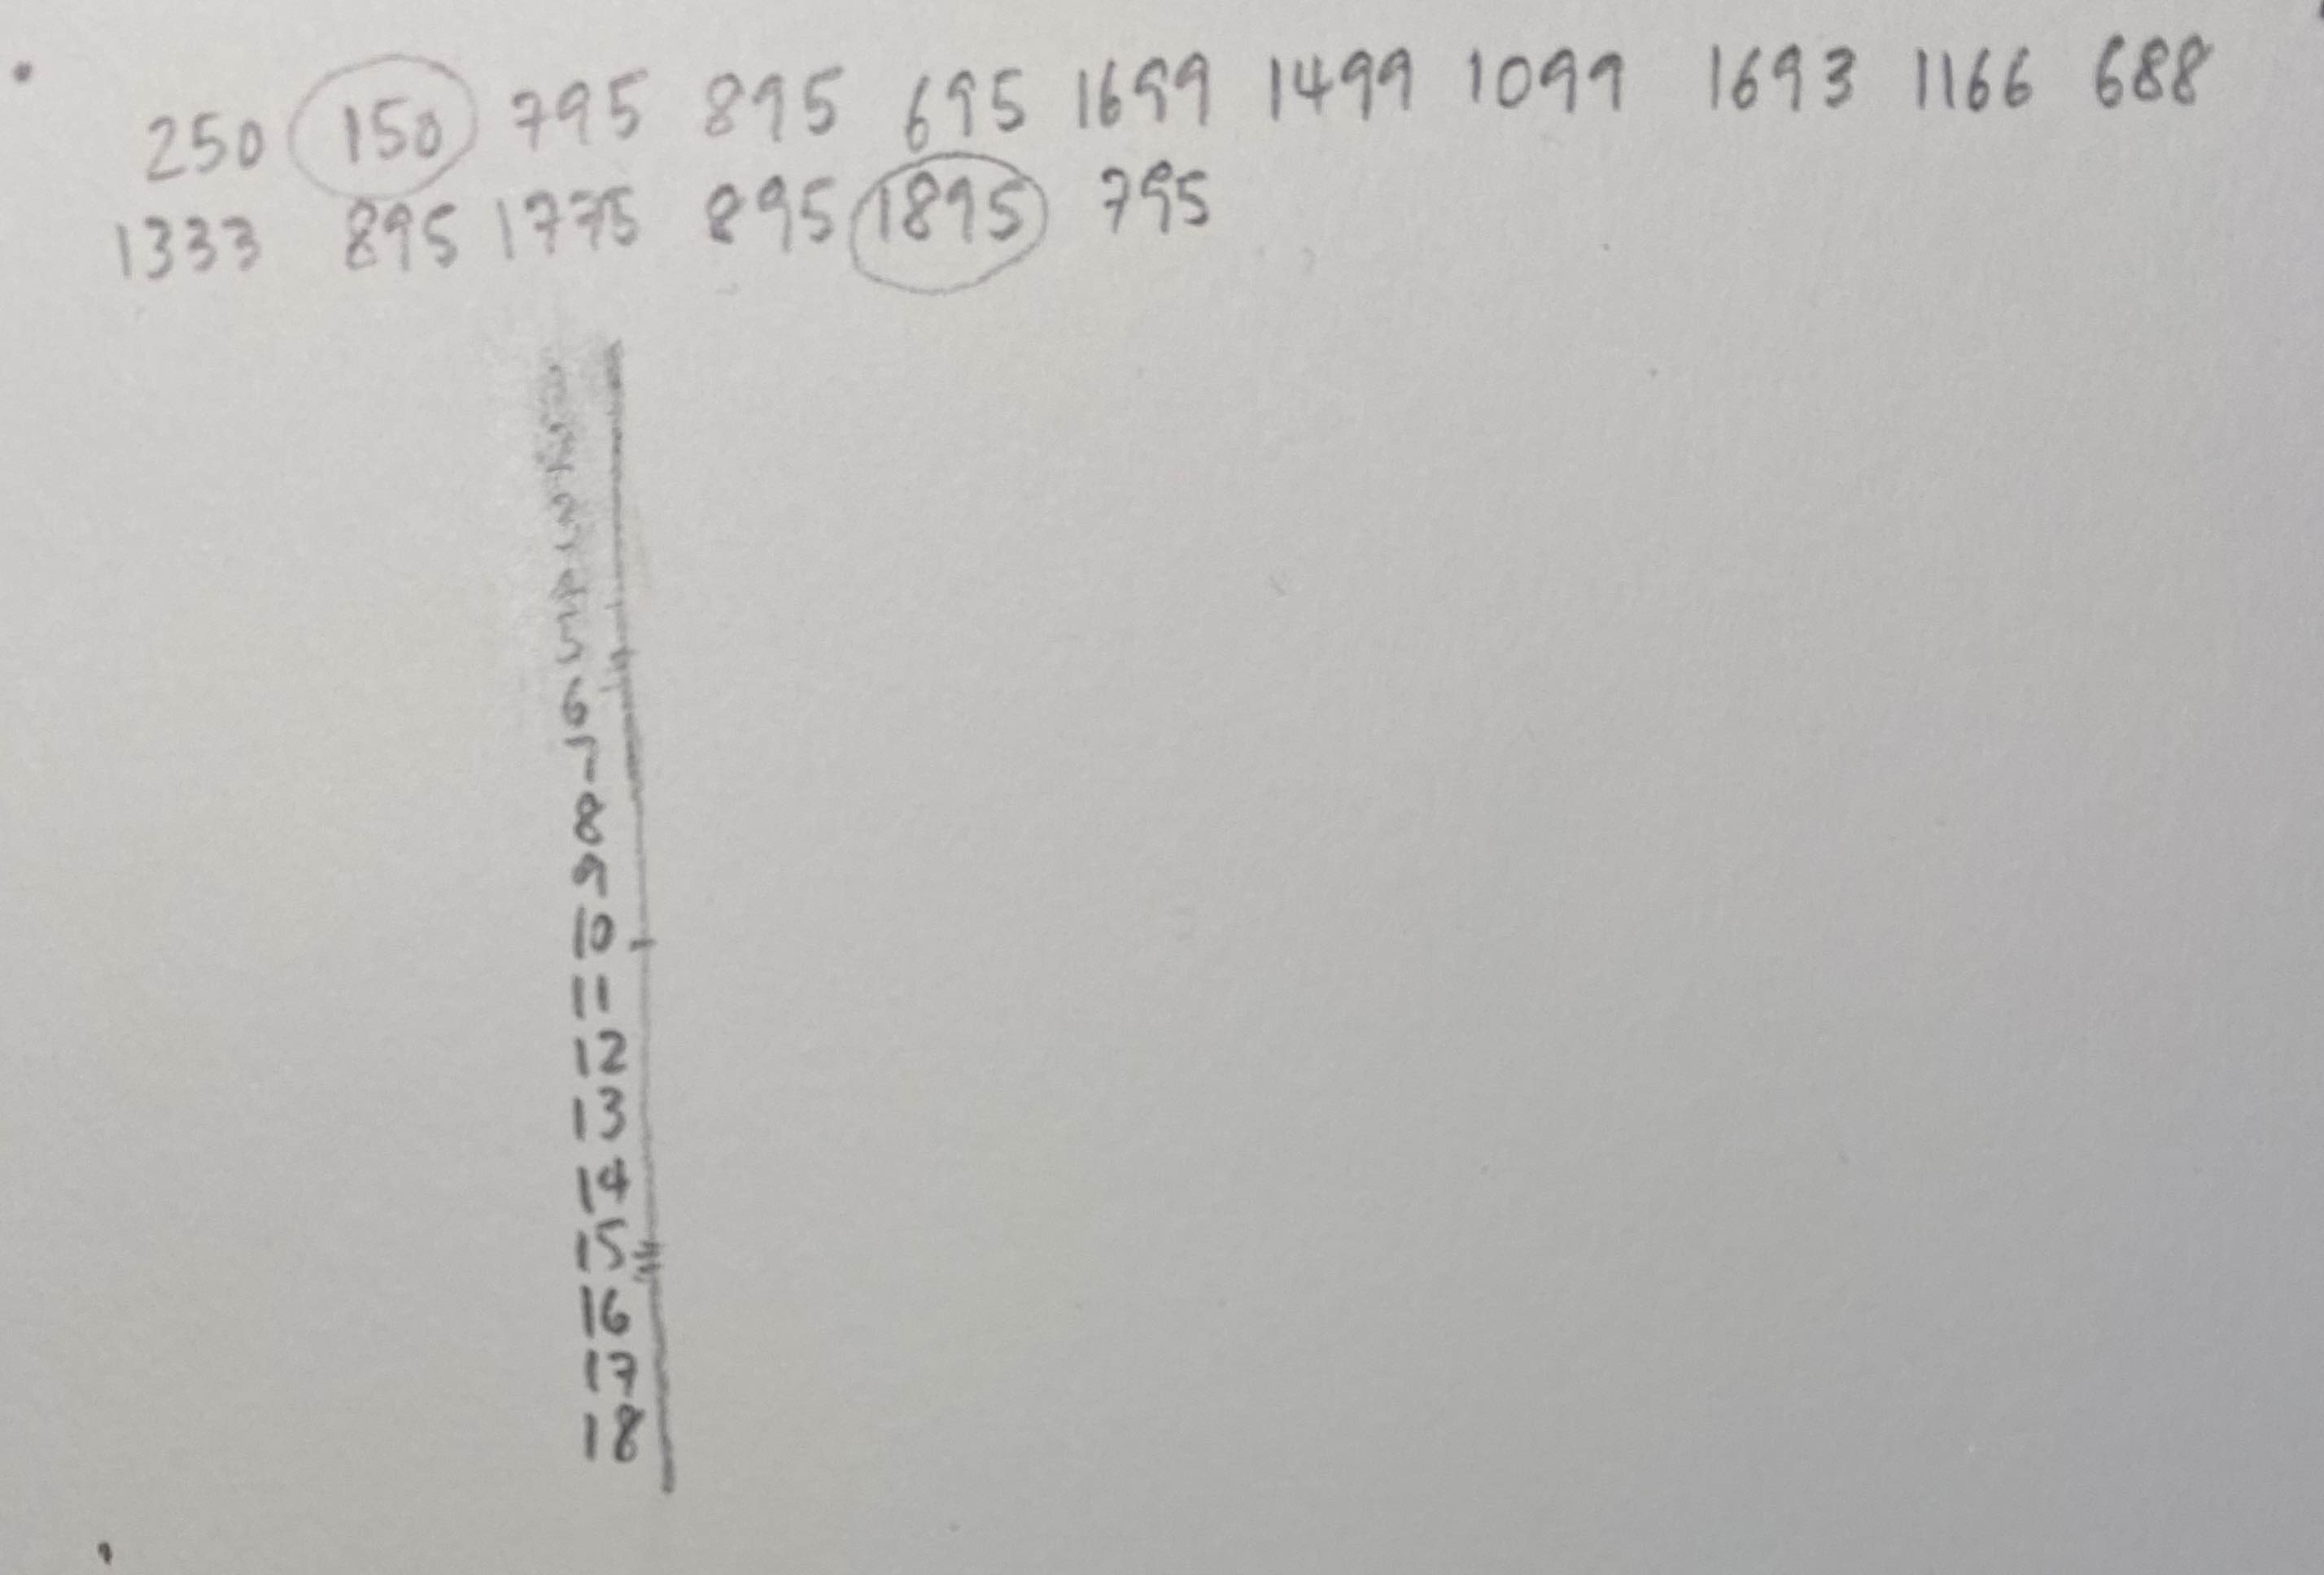 250 150 795 895 695 1699 1499 1099 1693 1166 688
1333 895 1775 895 1895 795
2
3
4
5
6
7
8
9
10
11
12
13
14
15
16
17
18